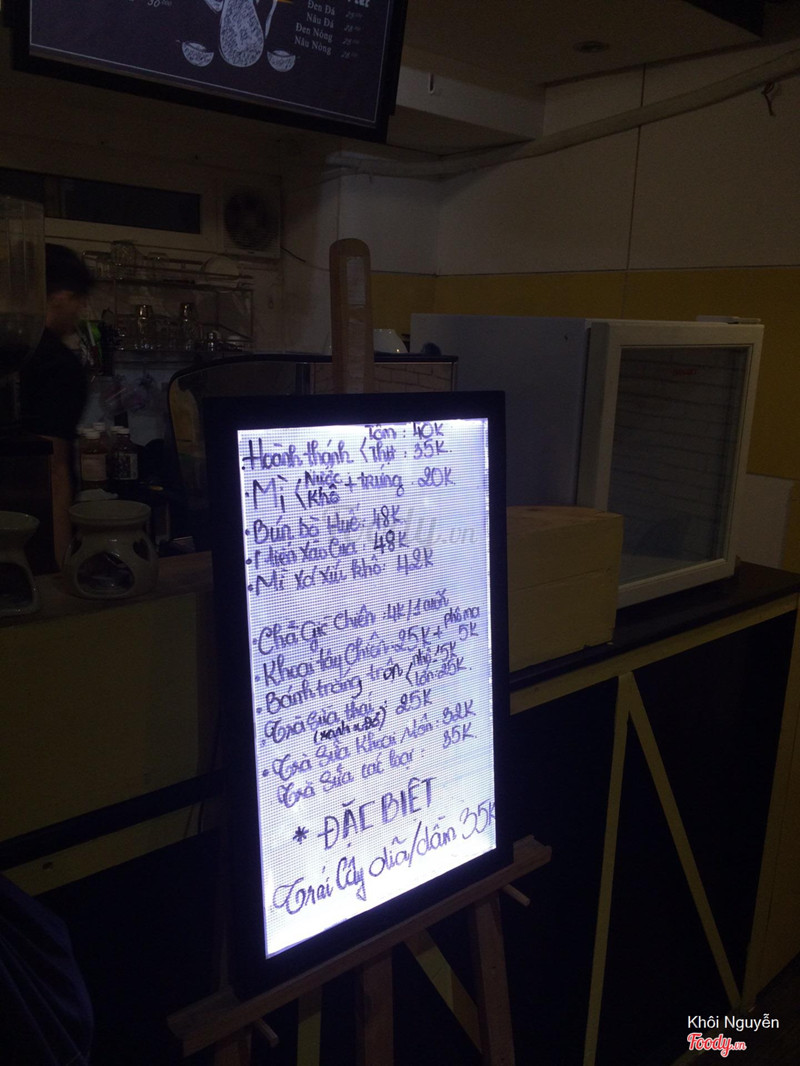 30
Đen Đá 25
Nâu Đá 28
Đen Nóng 25
Nâu Nóng 28
Tôm : 40K
Hoành thánh < Thịt : 35K.
Mì < Nước Khô + trứng 20K
Bún bò Huế: 48K
Miến Xào Cua: 48K
Mì Xá Xíu khô: 42K
Chả Giò Chiên: 4K/1 cuốn
Khoai tây Chiên: 25K + phô ma 5K
Bánh tráng trộn < nhỏ: 15K lớn: 25K.
Trà Sữa thái (xanh - đỏ) : 25K
Trà Sữa Khoai Môn: 32K
Trà Sữa các loại : 35K.
* ĐẶC BIỆT
Trái Cây dĩa/dầm 35K
Foody.vn
Khôi Nguyễn
Foody.vn